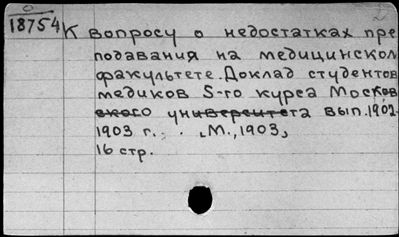 18754
К вопросу о недостатках пре
подавания на медицинском
факультете. Доклад студентов
медиков 5-го курса Москов
ского университета вып. 1902-
1903 г. М., 1903,
16 стр.